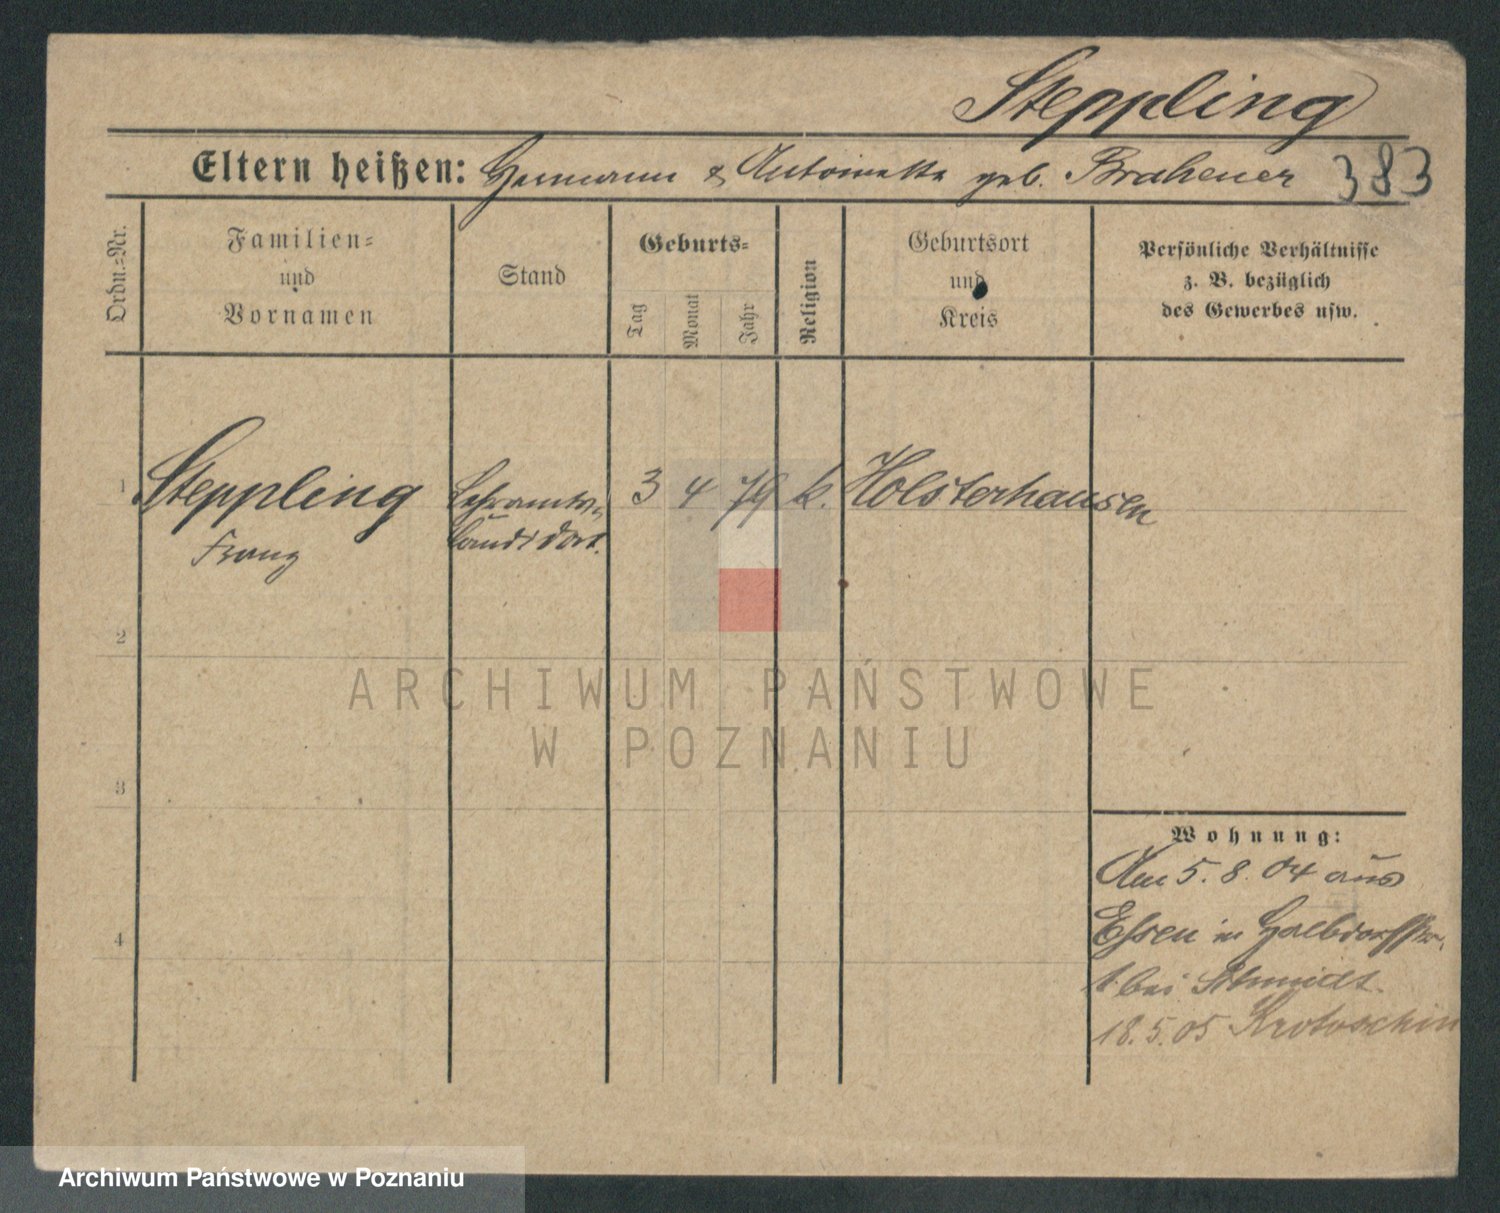 Steppling
Eltern heißen: Hermann & Antoinette geb. Brahener 383
Ordn.-Nr.
Familien-
und
Vornamen
Stand
Geburts-
Tag
Monat
Jahr
Religion
Geburtsort
und
Kreis
Persönliche Verhältnisse
z. B. bezüglich
des Gewerbes usw.
1 Steppling Lehramts- 3 4 79 k. Holsterhausen
Franz Candidat.
2
3
4
ARCHIWUM PAŃSTWOWE
W POZNANIU
Wohnung:
Am 5. 8. 04 aus
Essen in Halbdorfstr.
1 bei Schmidt.
18. 5. 05 Krotoschin
Archiwum Państwowe w Poznaniu